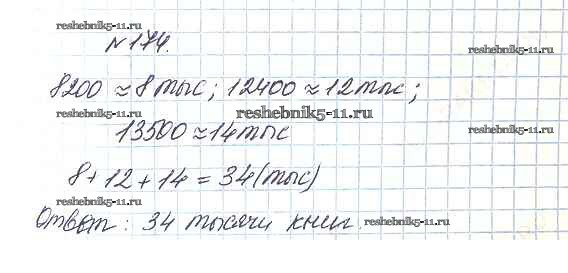 reshebnik5-11.ru
№174.
reshebnik5-11.ru
8200 ≈ 8 тыс; 12400 ≈ 12 тыс;
reshebnik5-11.ru
reshebnik5-11.ru
13500 ≈ 14 тыс
reshebnik5-11.ru
8 + 12 + 14 = 34 (тыс)
reshebnik5-11.ru
reshebnik5-11.ru
Ответ: 34 тысячи книг.
reshebnik5-11.ru